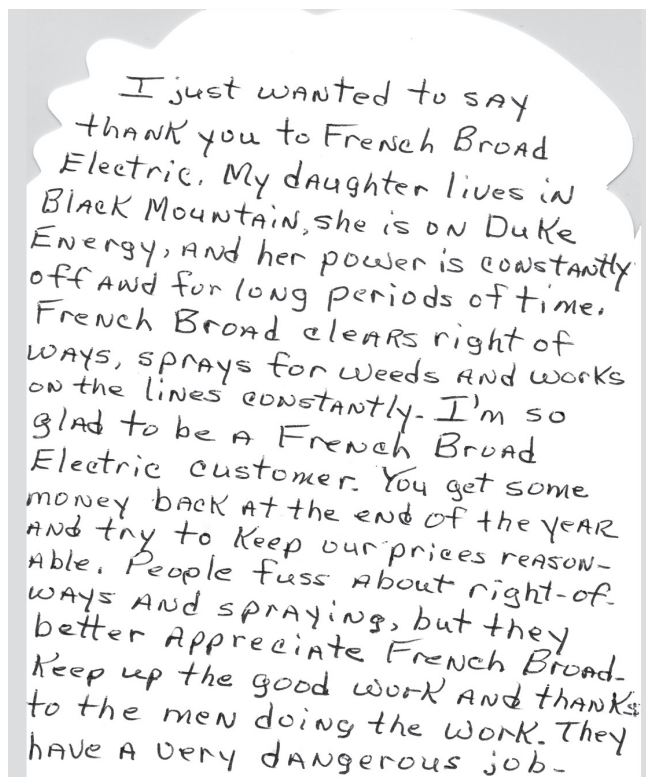 I just wanted to say
thank you to French Broad
Electric. My daughter lives in
Black Mountain, she is on Duke
Energy, and her power is constantly
off and for long periods of time.
French Broad clears right of
ways, sprays for weeds and works
on the lines constantly. I'm so
glad to be a French Broad
Electric customer. You get some
money back at the end of the year
and try to keep our prices reason-
able. People fuss about right-of-
ways and spraying, but they
better appreciate French Broad.
Keep up the good work and thanks
to the men doing the work. They
have a very dangerous job.